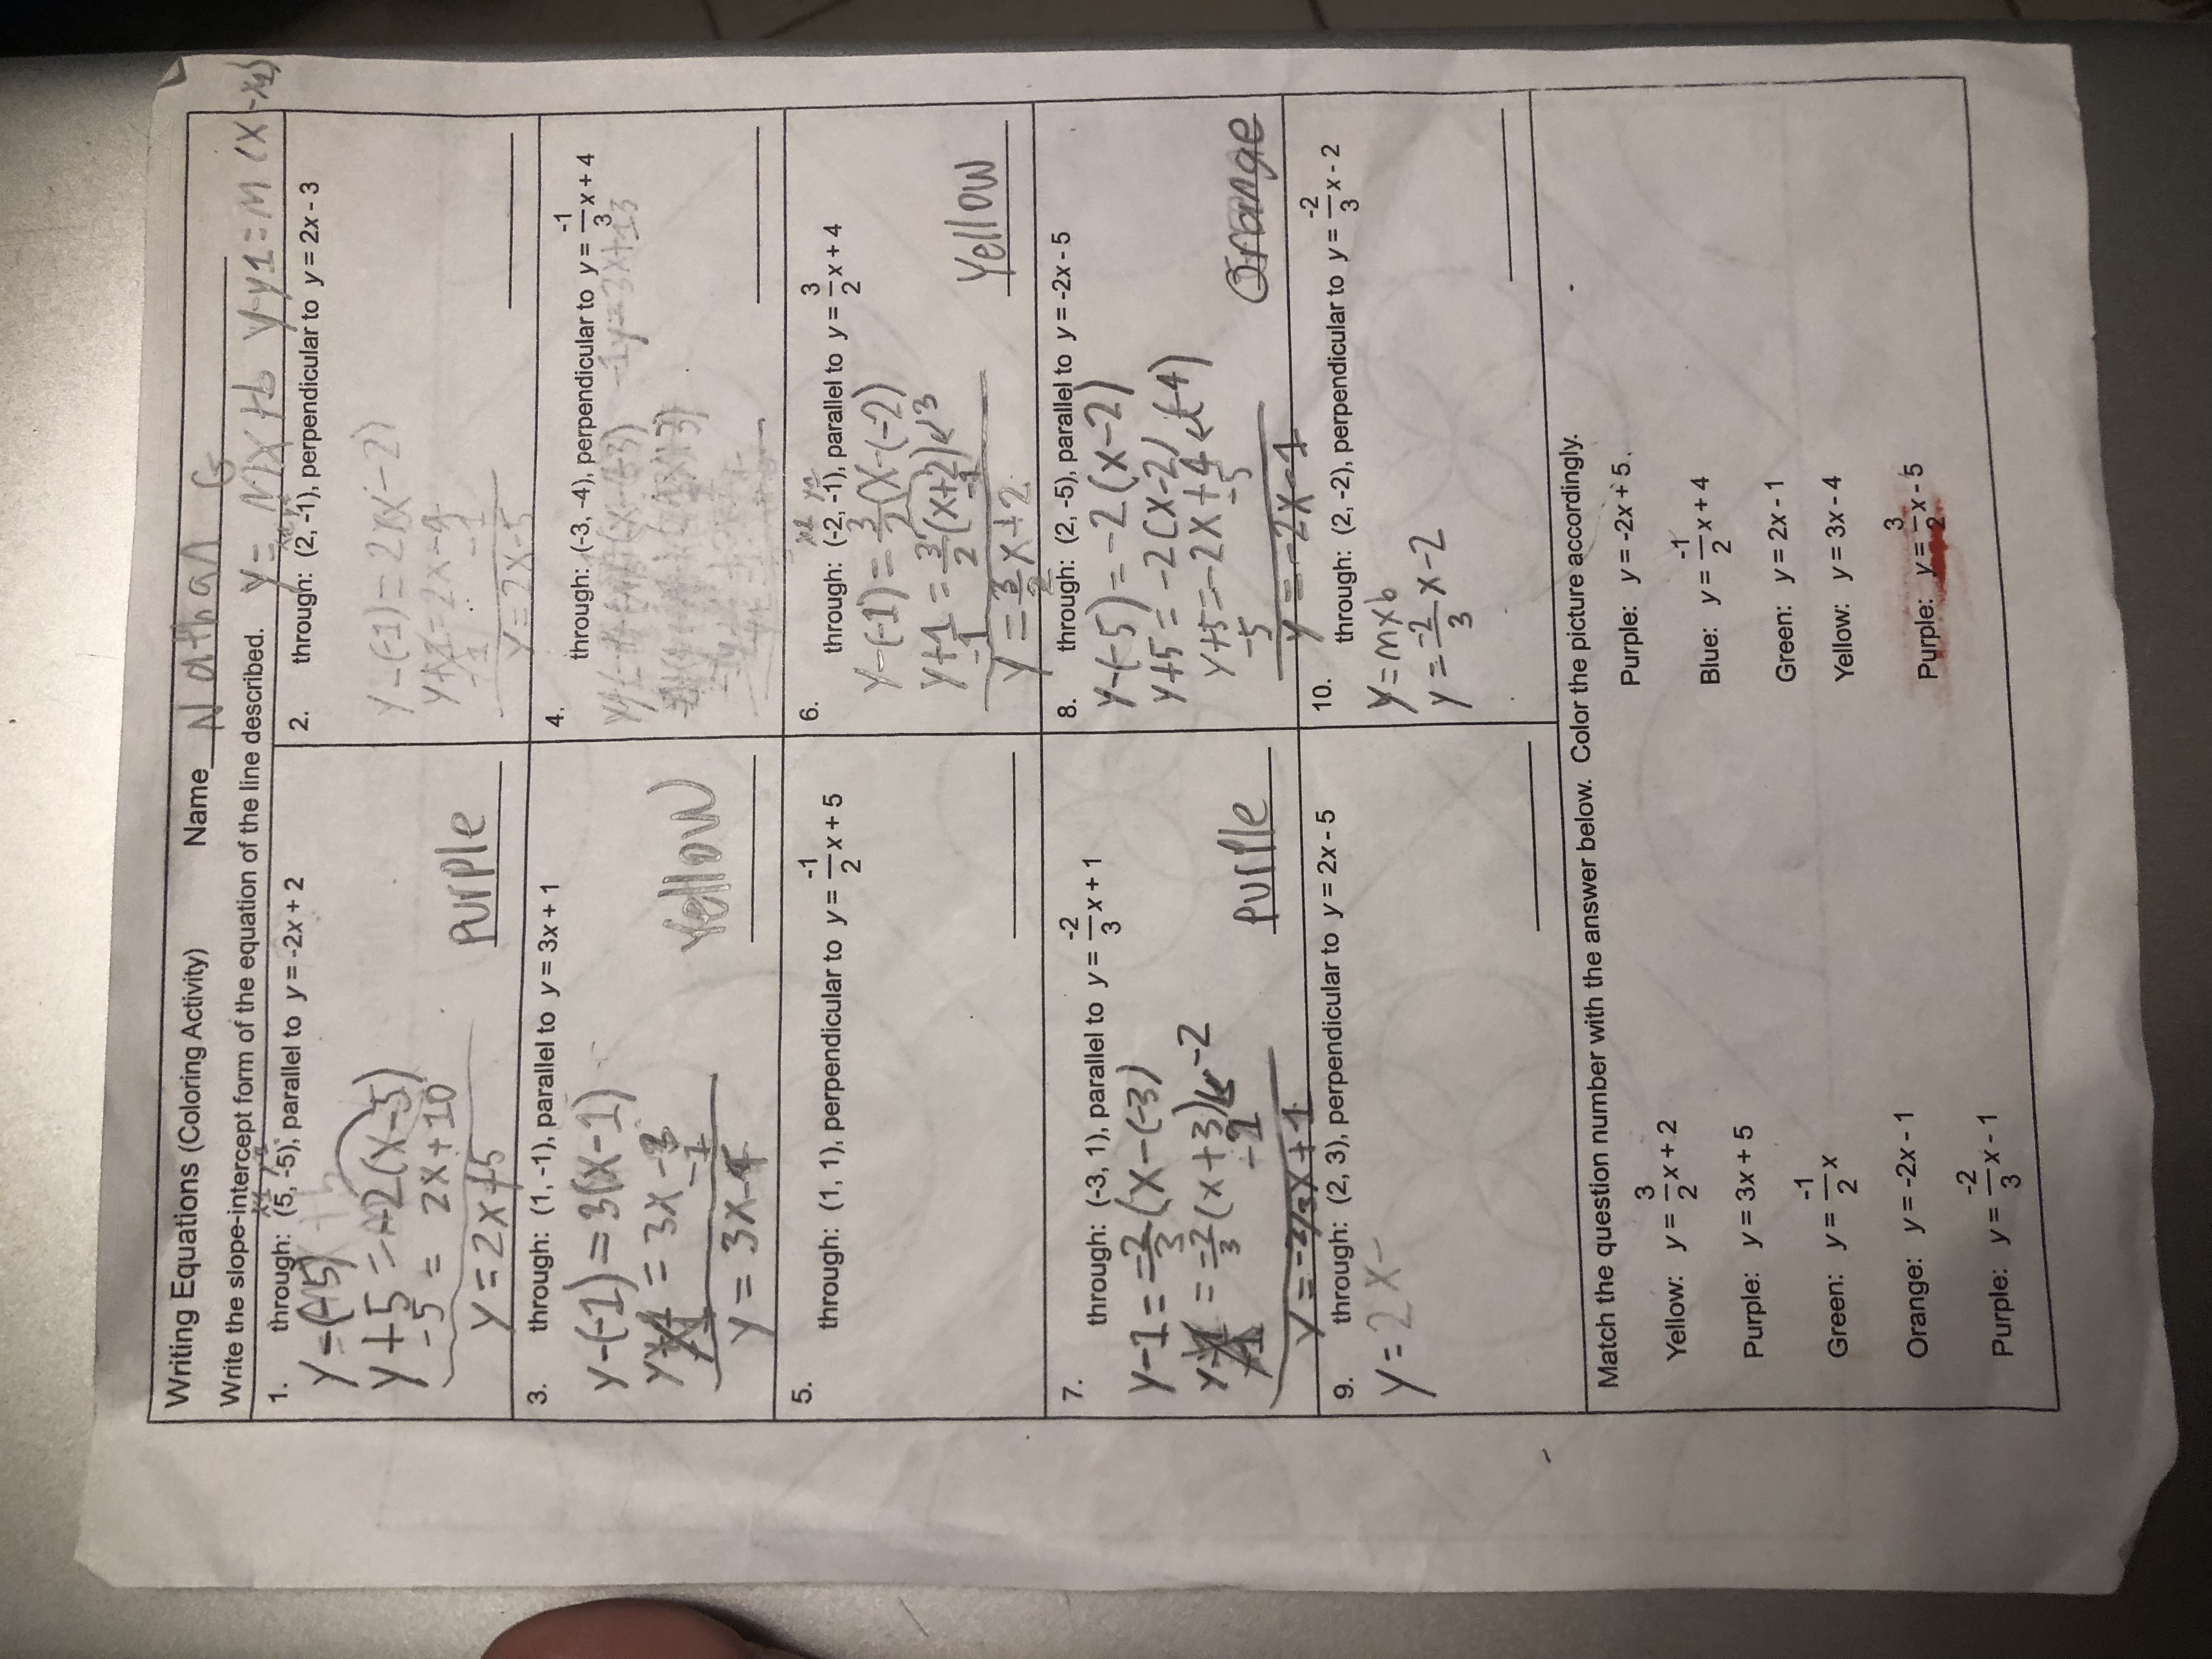 Writing Equations (Coloring Activity) Name Nathan G
Write the slope-intercept form of the equation of the line described. y = mx+b y-y1=m(x-x1)
1. through: (5, -5), parallel to y = -2x + 2
y+5 = -2(x-5)
-5 = 2x+10
y=2x+5
Purple
2. through: (2, -1), perpendicular to y = 2x - 3
y-(-1)=2(x-2)
y=2x-5
3. through: (1, -1), parallel to y = 3x + 1
y-(-1)=3(x-1)
= 3x-3
-1
y = 3x-4
Yellow
4. through: (-3, -4), perpendicular to y = -1/3 x + 4
5. through: (1, 1), perpendicular to y = -1/2 x + 5
6. through: (-2, -1), parallel to y = 3/2 x + 4
y-(-1)=3/2(x-(-2)
y+1=3/2(x+2) 3
-1 -1
y=3/2x+2
Yellow
7. through: (-3, 1), parallel to y = -2/3 x + 1
y-1=-2/3(x-(-3)
= -2/3(x+3) -2
y=-2/3x+1
Purple
8. through: (2, -5), parallel to y = -2x - 5
y-(-5)=-2(x-2)
y+5=-2(x-2)
y+5=-2x+4
-5 -5
y=-2x-1
Orange
9. through: (2, 3), perpendicular to y = 2x - 5
y=2x-
10. through: (2, -2), perpendicular to y = -2/3 x - 2
y=mxb
y=-2/3x-2
Match the question number with the answer below. Color the picture accordingly.
Yellow: y = 3/2 x + 2 Purple: y = -2x + 5
Purple: y = 3x + 5 Blue: y = -1/2 x + 4
Green: y = -1/2 x Green: y = 2x - 1
Orange: y = -2x - 1 Yellow: y = 3x - 4
Purple: y = -2/3 x - 1 Purple: y = 3/2 x - 5